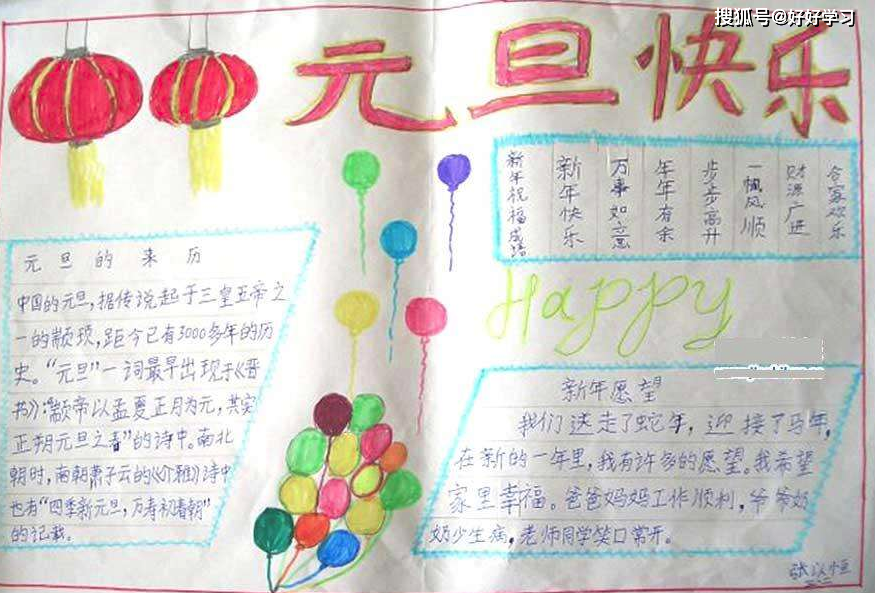 搜狐号@好好学习
元旦快乐
新年祝福成语
新年快乐
万事如意
年年有余
步步高升
一帆风顺
财源广进
合家欢乐
Happy
元旦的来历
中国的元旦,据传说起于三皇五帝之
一的颛顼,距今已有3000多年的历
史。“元旦”一词最早出现于《晋
书》:“颛帝以孟夏正月为元,其实
正朔元旦之春”的诗中。南北
朝时,南朝萧子云的《介雅》诗中
也有“四季新元旦,万寿初春朝”
的记载。
新年愿望
我们送走了蛇年,迎接了马年,
在新的一年里,我有许多的愿望。我希望
家里幸福。爸爸妈妈工作顺利,爷爷奶
奶少生病,老师同学笑口常开。
张以恒